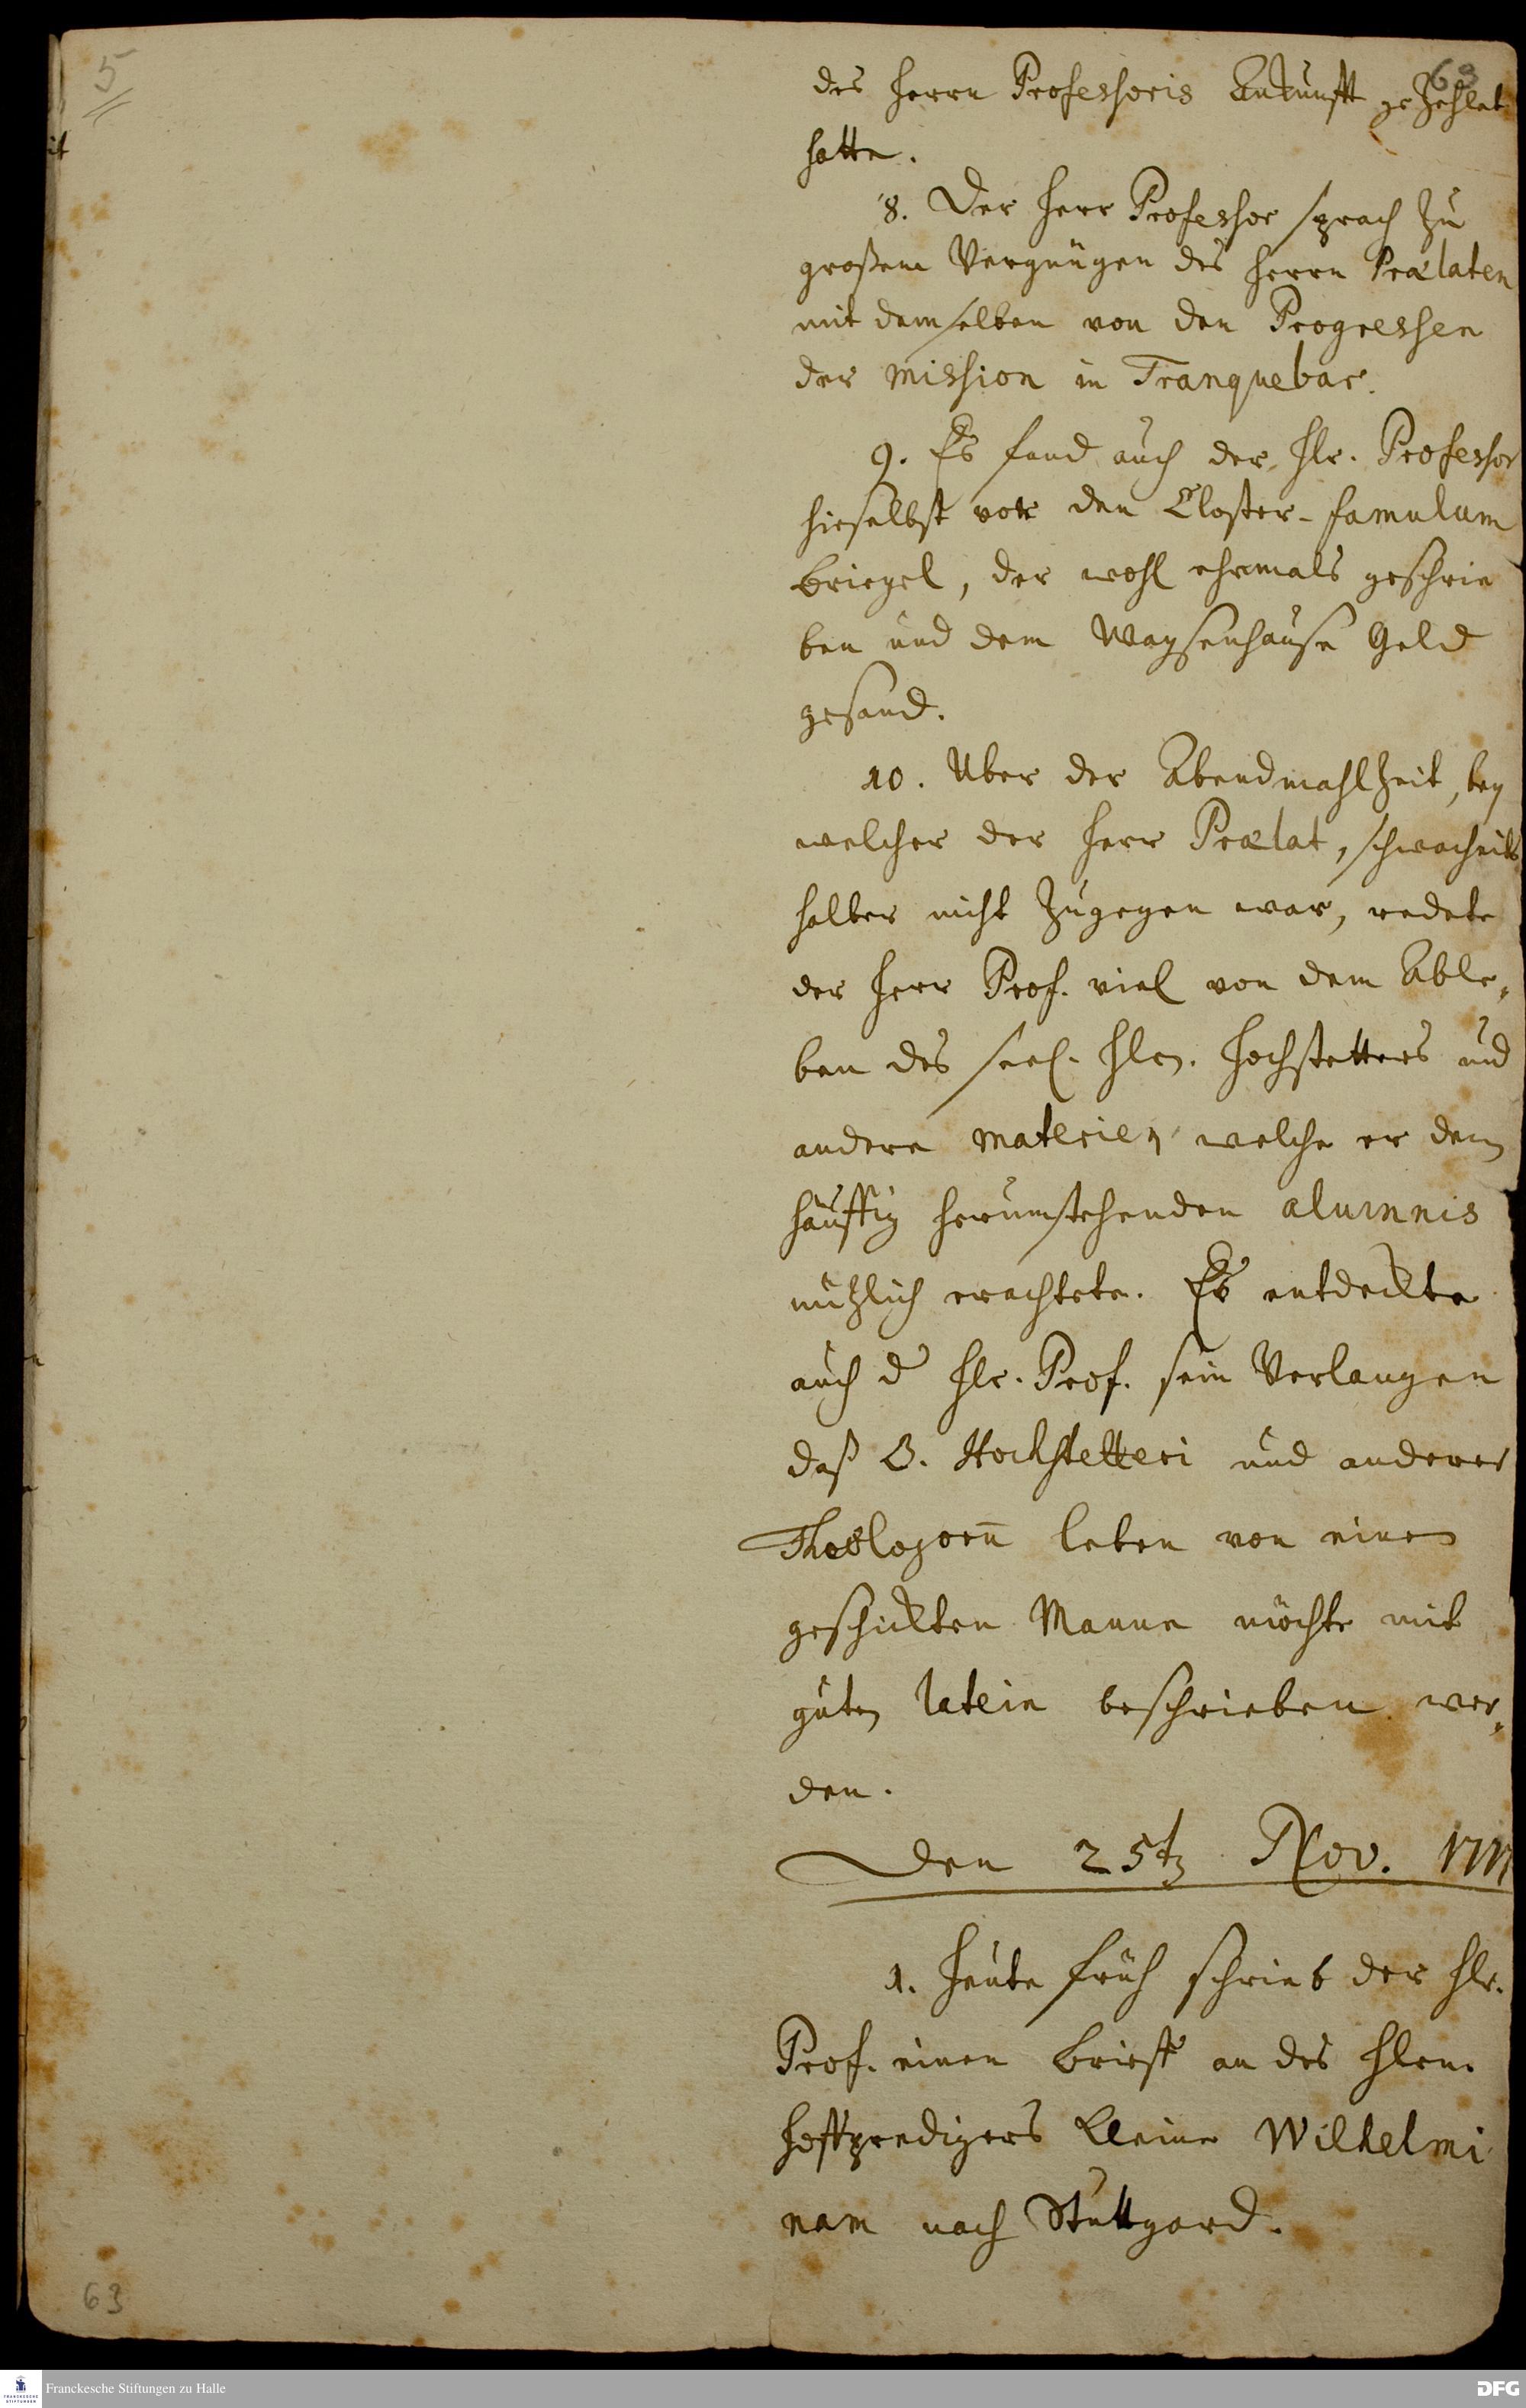 5
63
it
des Herrn Professoris Ankunfft gezehlet
hatte.
8. Der Herr Professor sprach zu
großem Vergnügen des Herrn Prælaten
mit demselben von den Progressen
der Mission in Tranquebar.
9. Es fand auch der Hr. Professor
hieselbst vor den Closter-famulum
Briegel, der wohl ehemals geschrie
ben und dem Waysenhause Geld
gesand.
10. Uber der Abendmahlzeit, bey
welcher der Herr Prælat, schwachheits
halber nicht zugegen war, redete
der Herr Prof. viel von dem Able,
ben des seel. Hln. Hochstetters und
andere materien welche er den
häuffig herumstehenden alumnis
nützlich erachtete. Es entdeckte
auch d Hr. Prof. sein Verlangen
daß B. Hochstetteri und anderer
Theologorum leben von einem
geschickten Manne möchte mit
guten latein beschrieben wer,
den.
Den 25t. Nov. 1717
1. Heute früh schrieb der Hr.
Prof. einen Brieff an des Hlrn.
Hoffpredigers kleine Wilhelmi
nam nach Stuttgard.
63
Franckesche Stiftungen zu Halle
DFG